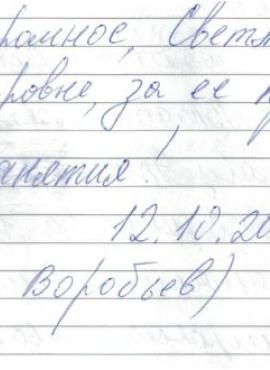 ромное, Светл
ровне, за ее
анятия!
12.10.20
Воробьев)